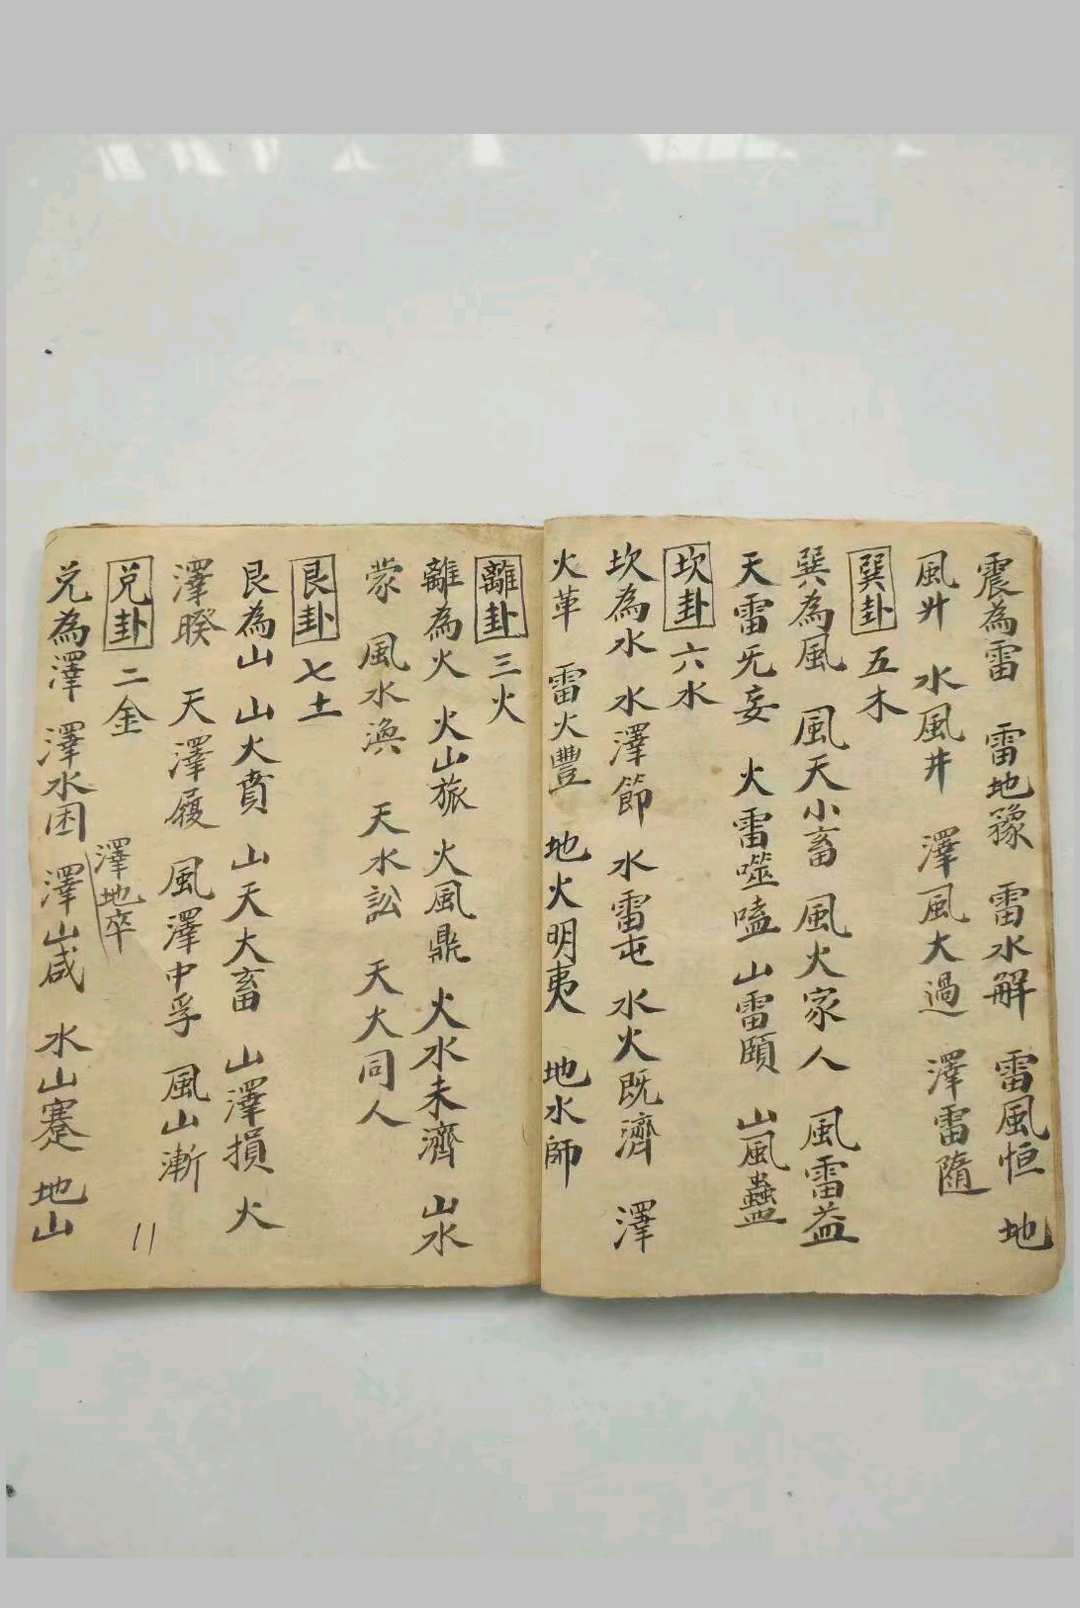 震為雷 雷地豫 雷水解 雷風恒 地
風升 水風井 澤風大過 澤雷隨
巽卦 五木
巽為風 風天小畜 風火家人 風雷益
天雷无妄 火雷噬嗑 山雷頤 山風蠱
坎卦 六水
坎為水 水澤節 水雷屯 水火既濟 澤
火革 雷火豐 地火明夷 地水師
離卦 三火
離為火 火山旅 火風鼎 火水未濟 山水
蒙 風水渙 天水訟 天火同人
艮卦 七土
艮為山 山火賁 山天大畜 山澤損 火
澤暌 天澤履 風澤中孚 風山漸
兑卦 二金
11
澤地卒
兑為澤 澤水困 澤山咸 水山蹇 地山